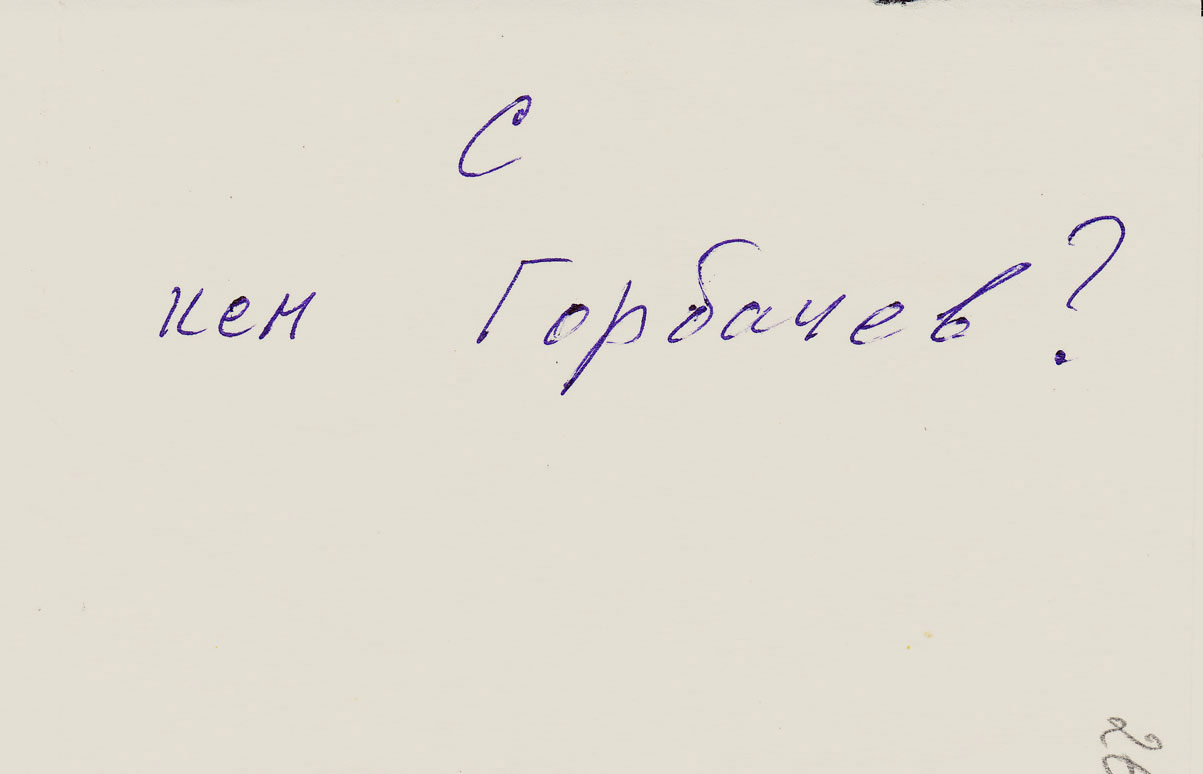 С
кем Горбачев?